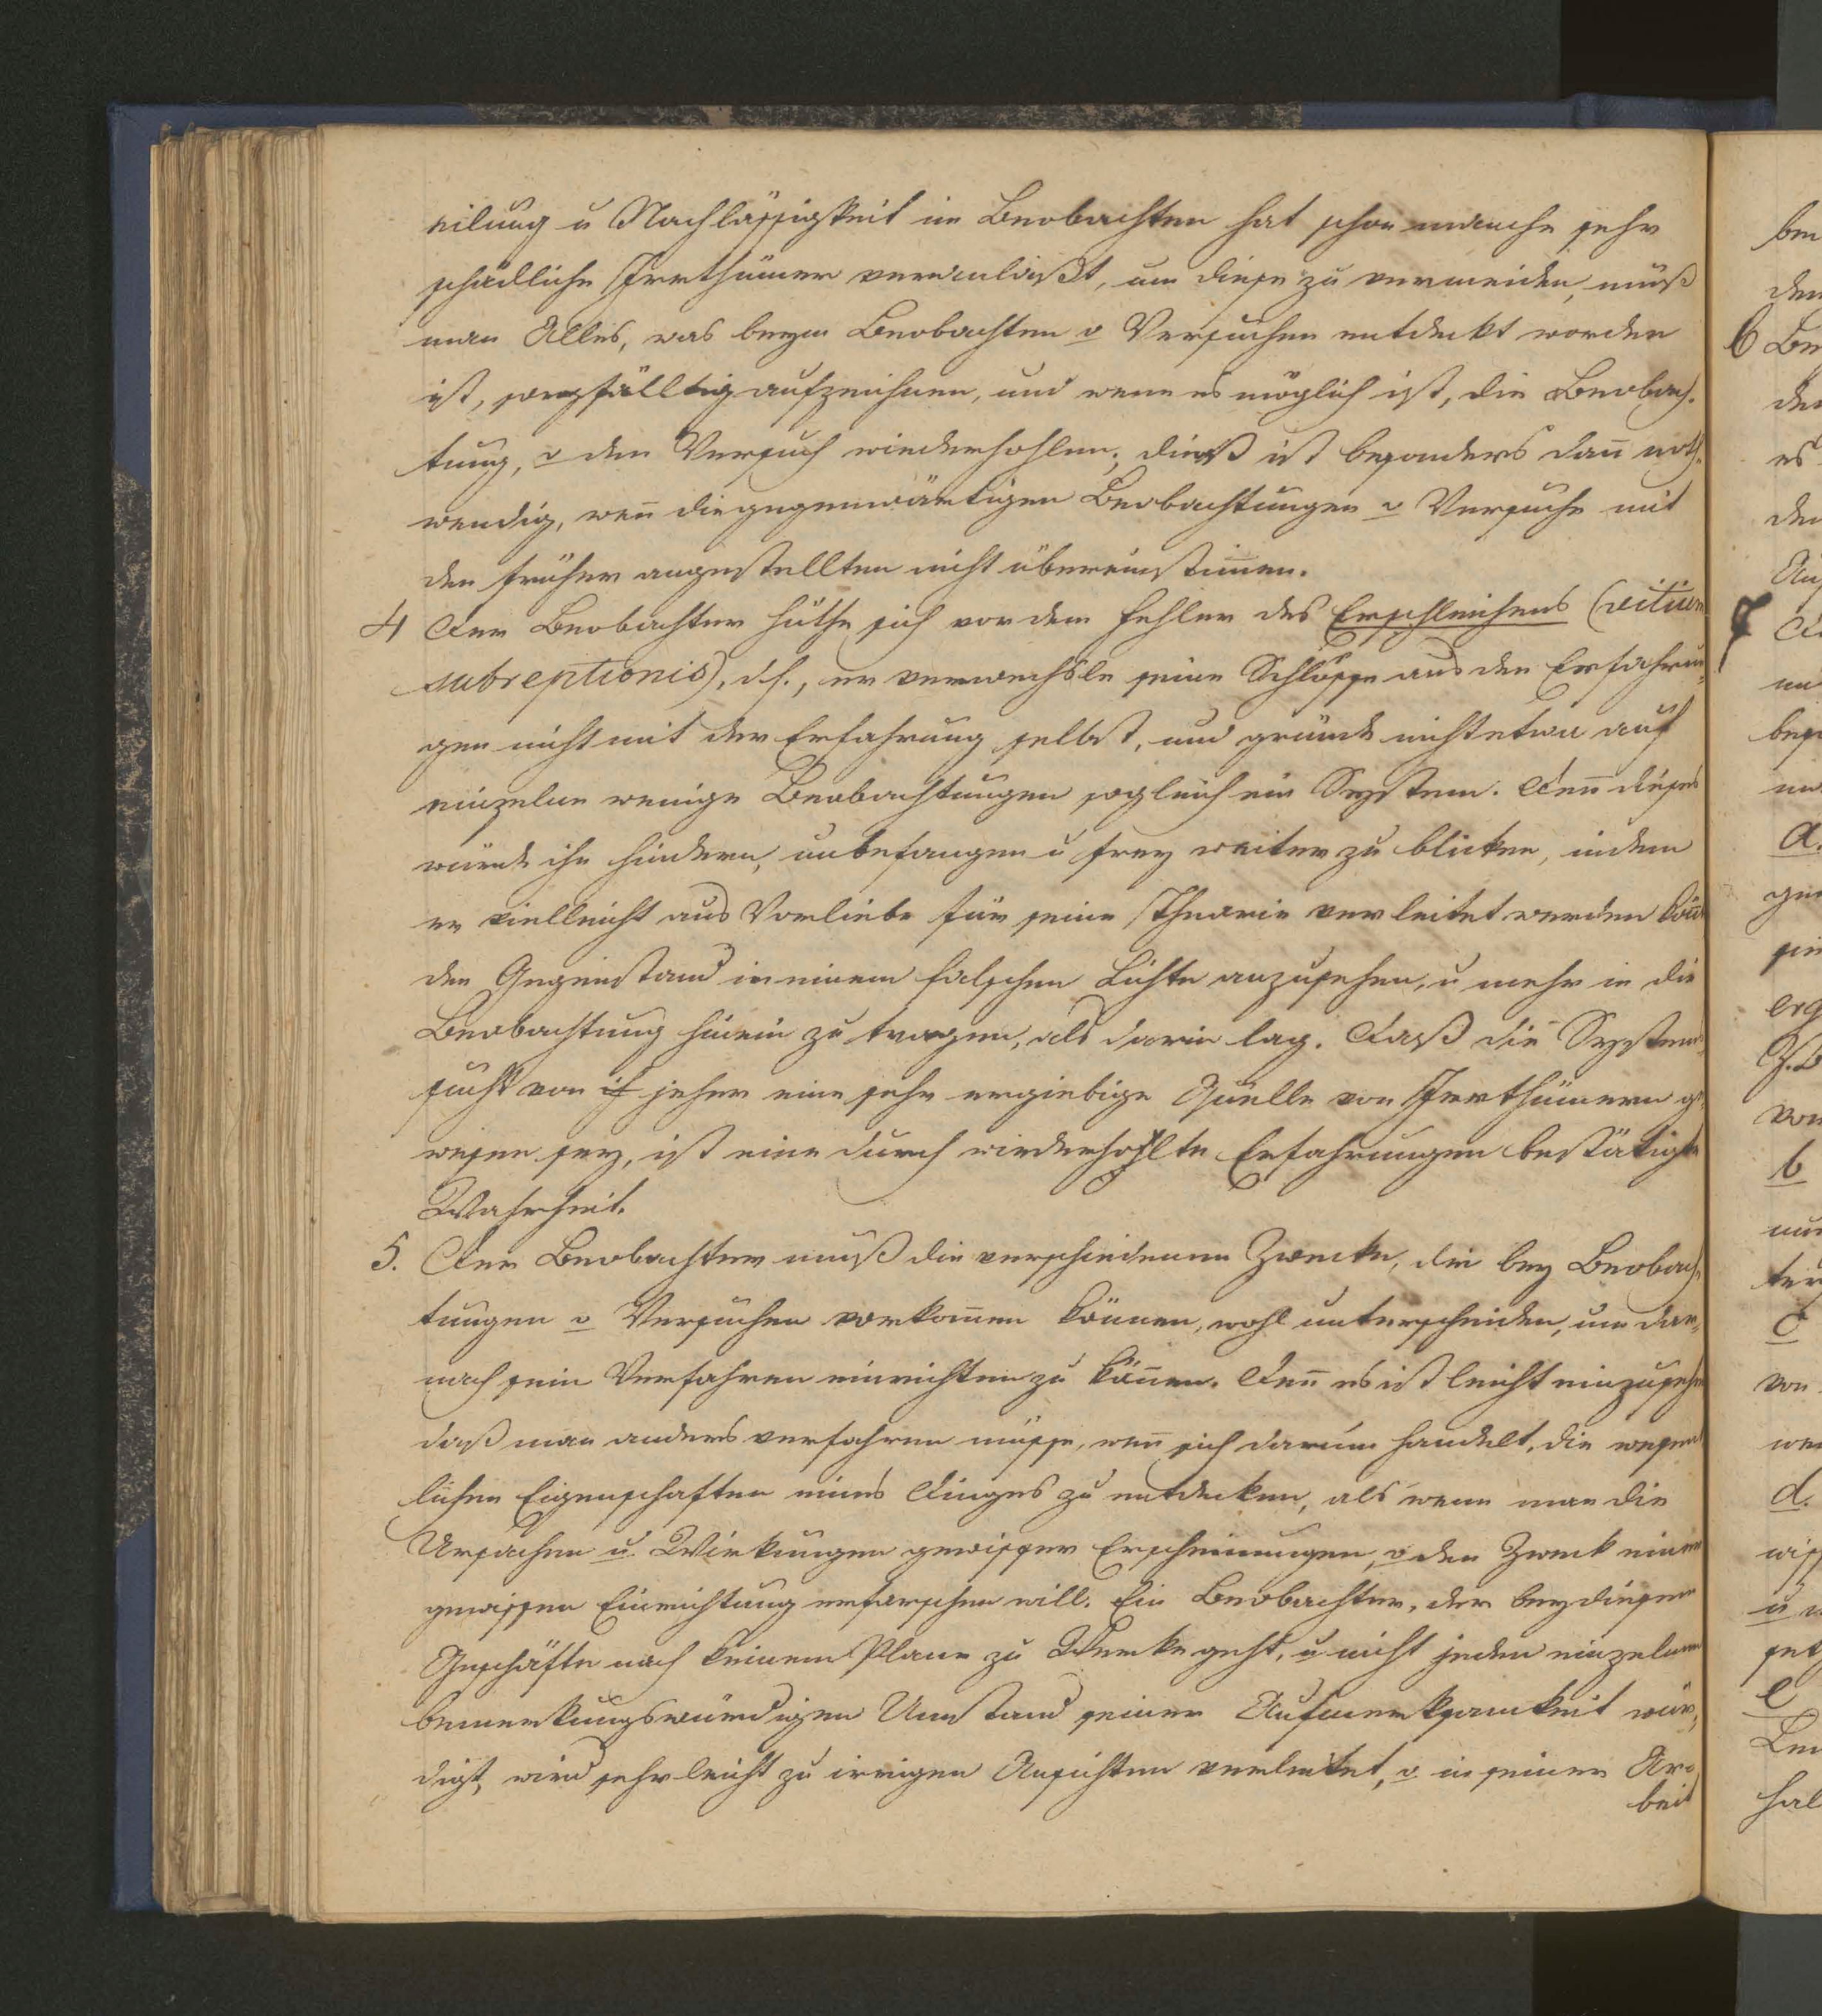 eilung u Nachlässigkeit im Beobachten hat schon manche sehr
schädliche Irrthümer veranlaßt, um diese zu vermeiden, muß
man Alles, was beym Beobachten o Versuchen entdeckt worden
ist, sorgfälltig aufzeichnen, und wenn es möglich ist, die Beobach-
tung, o den Versuch wiederhohlen; dieß ist besonders dañ noth-
wendig, weñ die gegenwärtigen Beobachtungen o Versuche mit
den früher angestellten nicht übereinstim̄en.
4 Der Beobachter hüthe sich vor dem Fehler des Erschleichens (vitium
subreptionis), d.h., er verwechsle seine Schlüsse aus den Erfahrun-
gen nicht mit der Erfahrung selbst, und gründe nicht etwa auf
einzelne wenige Beobachtungen sogleich ein System. Deñ dieses
würde ihn hindern, unbefangen u frey weiter zu blicken, indem
er vielleicht aus Vorliebe für seine Theorie verleitet werden
den Gegenstand in einem falschen Lichte anzusehen, u mehr in die
Beobachtung hinein zu tragen, als darin lag. Daß die System-
sucht von jeher eine sehr ergiebige Quelle von Irrthümern ge-
wesen sey, ist eine durch wiederhohlte Erfahrungen bestätigte
Wahrheit.
5. Der Beobachter muß die verschiedenen Zwecke, die bey Beobach-
tungen o Versuchen vorkom̄en können, wohl unterscheiden, um dar-
nach sein Verfahren einrichten zu köñen. Deñ es ist leicht einzusehen
daß man anders verfahren müsse, weñ sich darum handelt, die wesent
lichen Eigenschaften eines Dinges zu entdecken, als wenn man die
Ursachen u Wirkungen gewisser Erscheinungen, o den Zweck einer
gewissen Einrichtung erforschen will. Ein Beobachter, der bey diesem
Geschäfte nach keinem Plane zu Werke geht, u nicht jeden einzelnen
bemerkungswürdigen Umstand seiner Aufmerksamkeit wür-
digt, wird sehr leicht zu irrigen Ansichten verleitet, o in seiner Ar-
beit